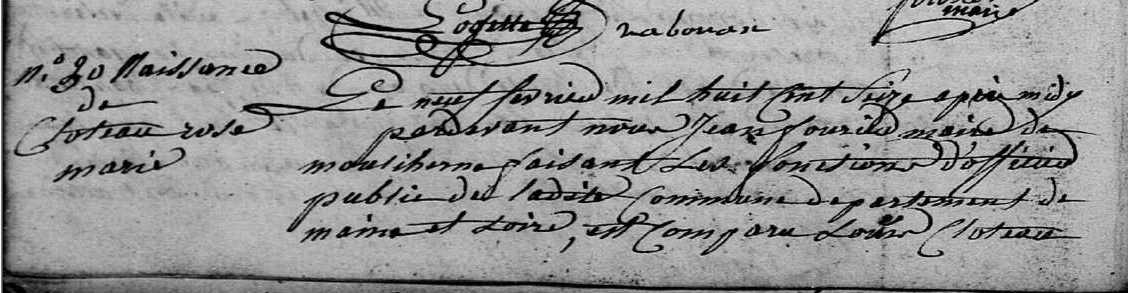 maire
n.° 30 Naissance
de
Cloteau rose
marie
Le neuf fevrier mil huit Cent Seize après midy
pardevant nous Jean fourier maire de
mouliherne faisant Les fonctions d'officier
public de ladite Commune departement de
maine et Loire, est Comparu Louis Cloteau